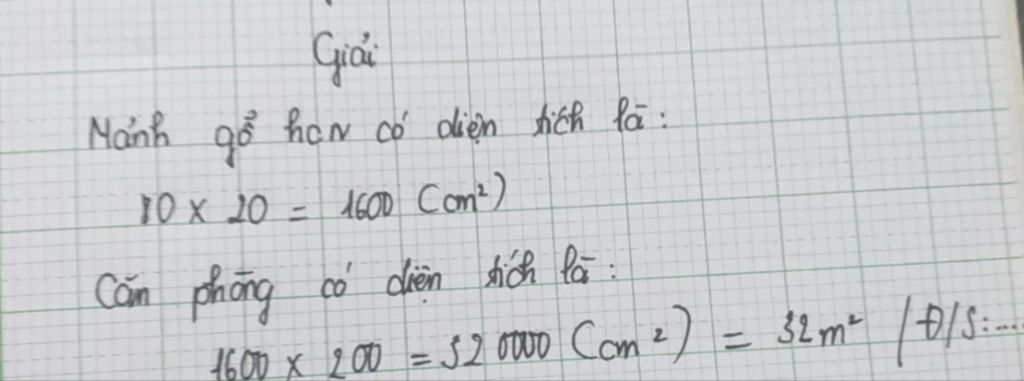 Giải
Mảnh gỗ hcn có diện tích là:
10 x 20 = 1600 (cm²)
Căn phòng có diện tích là:
1600 x 200 = 320000 (cm²) = 32m² /Đ/S:...